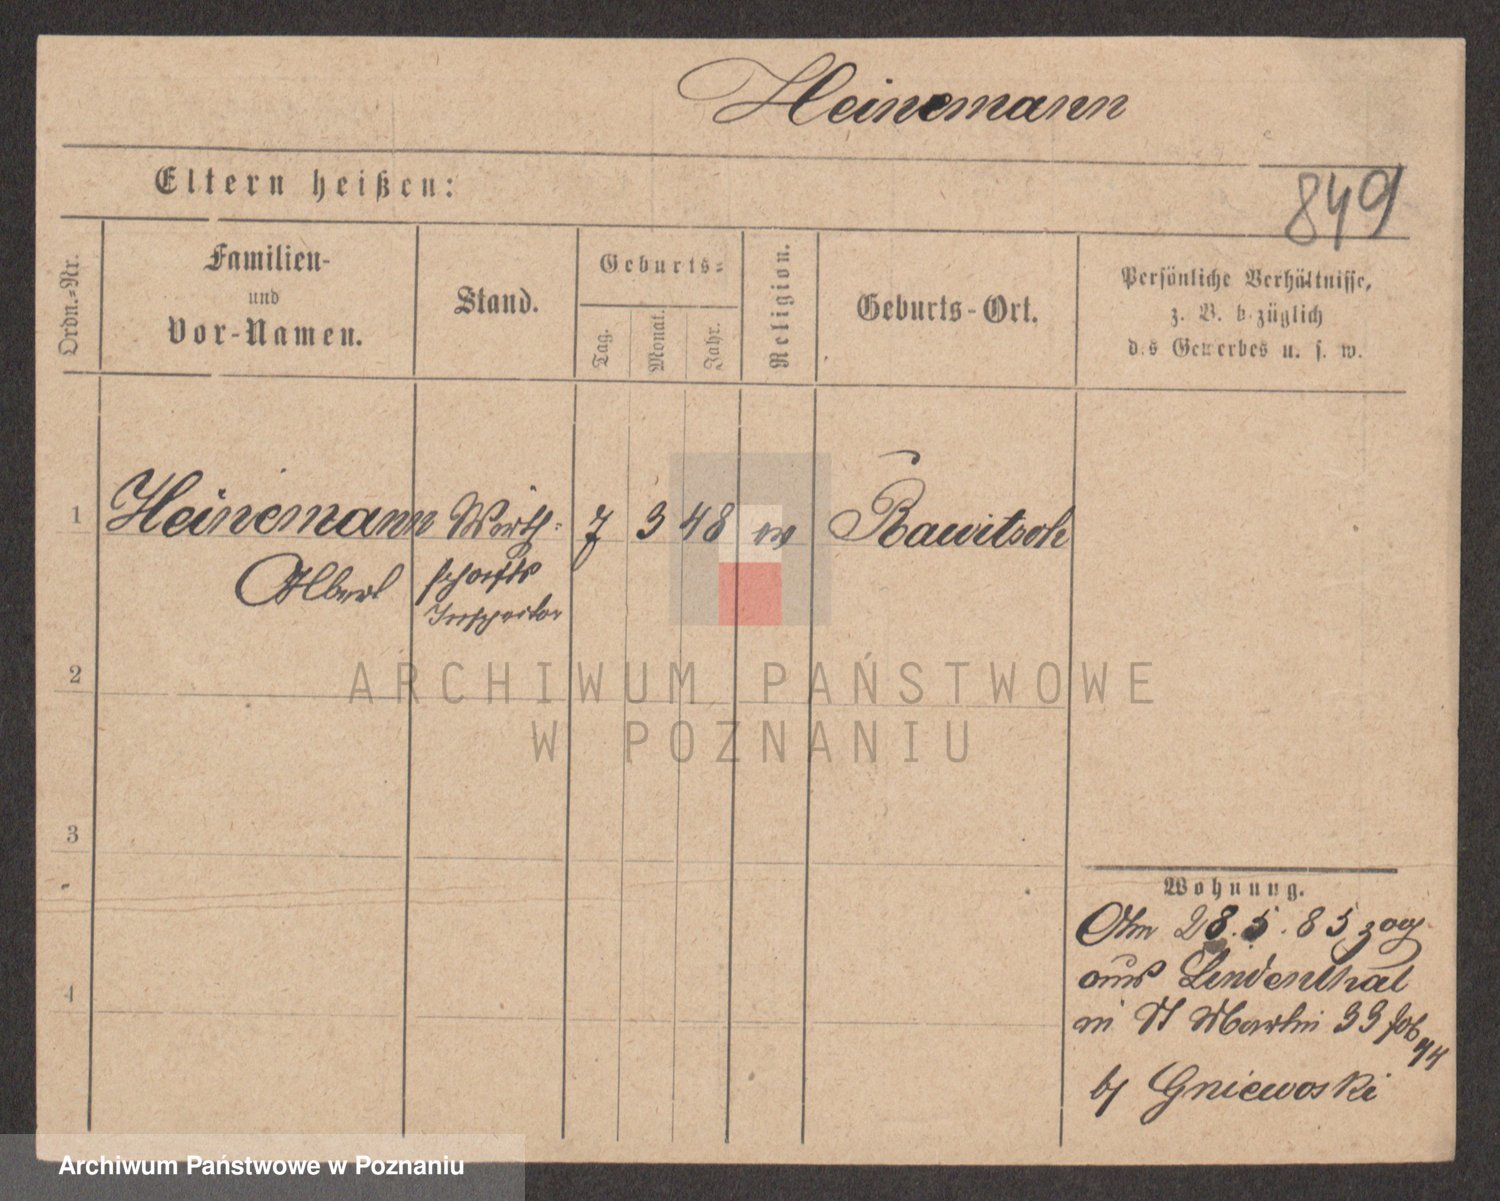 Heinemann
Eltern heißen:
849
Ordn.-Nr.
Familien-
und
Vor-Namen.
Stand.
Geburts-
Tag.
Monat.
Jahr.
Religion.
Geburts-Ort.
Persönliche Verhältnisse,
z. B. bezüglich
des Gewerbes u. s. w.
1 Heinemann Wirth- 7 3 48 Rawitsch
Albert schafts
Inspector
2
3
4
Wohnung.
Am 28.5.85 zog
aus Lindenthal
in St Martin 33
74
by Gniewoski
ARCHIWUM PAŃSTWOWE
W POZNANIU
Archiwum Państwowe w Poznaniu